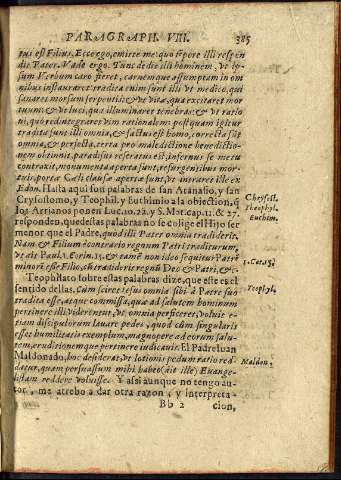 PARAGRAPH. VIII. 385
tus est Filius. Ecce ergo, emitte me: quo tẽpore illi respon
dit Pater. Vade ergo. Tunc dedit illi hominem, vt ip-
sum Verbum caro fieret, carnemque assumptam in om
nibus instauraret: tradita enim sunt illi vt medico, qui
sanaret morsum serpentis: & vt vitæ, qua excitaret mor
tuum: & vt luci, qua illuminaret tenebras: & vt ratio
ni, quo redintegraret vim rationalem: postquam igitur
tradita sunt illi omnia, & factus est homo, correcta sũt
omnia, & perfecta, terra pro maledictione benedictio-
nem obtinuit, paradisus reseratus est, infernus se metu
contraxit, monumenta aperta sunt, resurgentibus mor-
tuis, portæ Cæli clausæ apertæ sunt, vt intraret ille ex
Edon. Hasta aqui son palabras de san Atanasio, y san
Crysostomo, y Teophil. y Euthimio a la obiection, q̃
los Arrianos ponen Luc. 10. 22. y S. Mat. cap. 11. & 27.
respondeo, que destas palabras no se colige el Hijo ser
menor que el Padre, quod illi Pater omnia tradiderit.
Nam & Filium è contrario regnum Patri traditurum,
vt ait Paul. 1. Corin. 15. & tamẽ non ideo sequitur Patrẽ
minorẽ esse Filio,
Teophilato sobre estas palabras dize, que este es el
sentido dellas. Cum sciret Iesus omnia sibi à Patre suo
tradita esse, atque commissa, quæ ad salutem hominum
pertinere illi viderentur, vt omnia perficeret, voluit e-
tiam discipulorum lauare pedes, quod cùm singularis
esset humilitatis exemplum, magnopere ad eorum salu-
tem, eruditionemque pertinere iudicauit. El Padre Iuan
Maldonado, hoc desiderat, vt lotionis pedum ratio red-
datur, quam persuassum mihi habeo (ait ille) Euange-
listam reddere voluisse. Y assi aunque no tengo au-
tor, me atrebo a dar otra razon, y interpreta-
Bb 2 cion,
Chrysost.
Theophyl.
Euthim.
1. Cor. 15.
Teophyl.
Maldon.